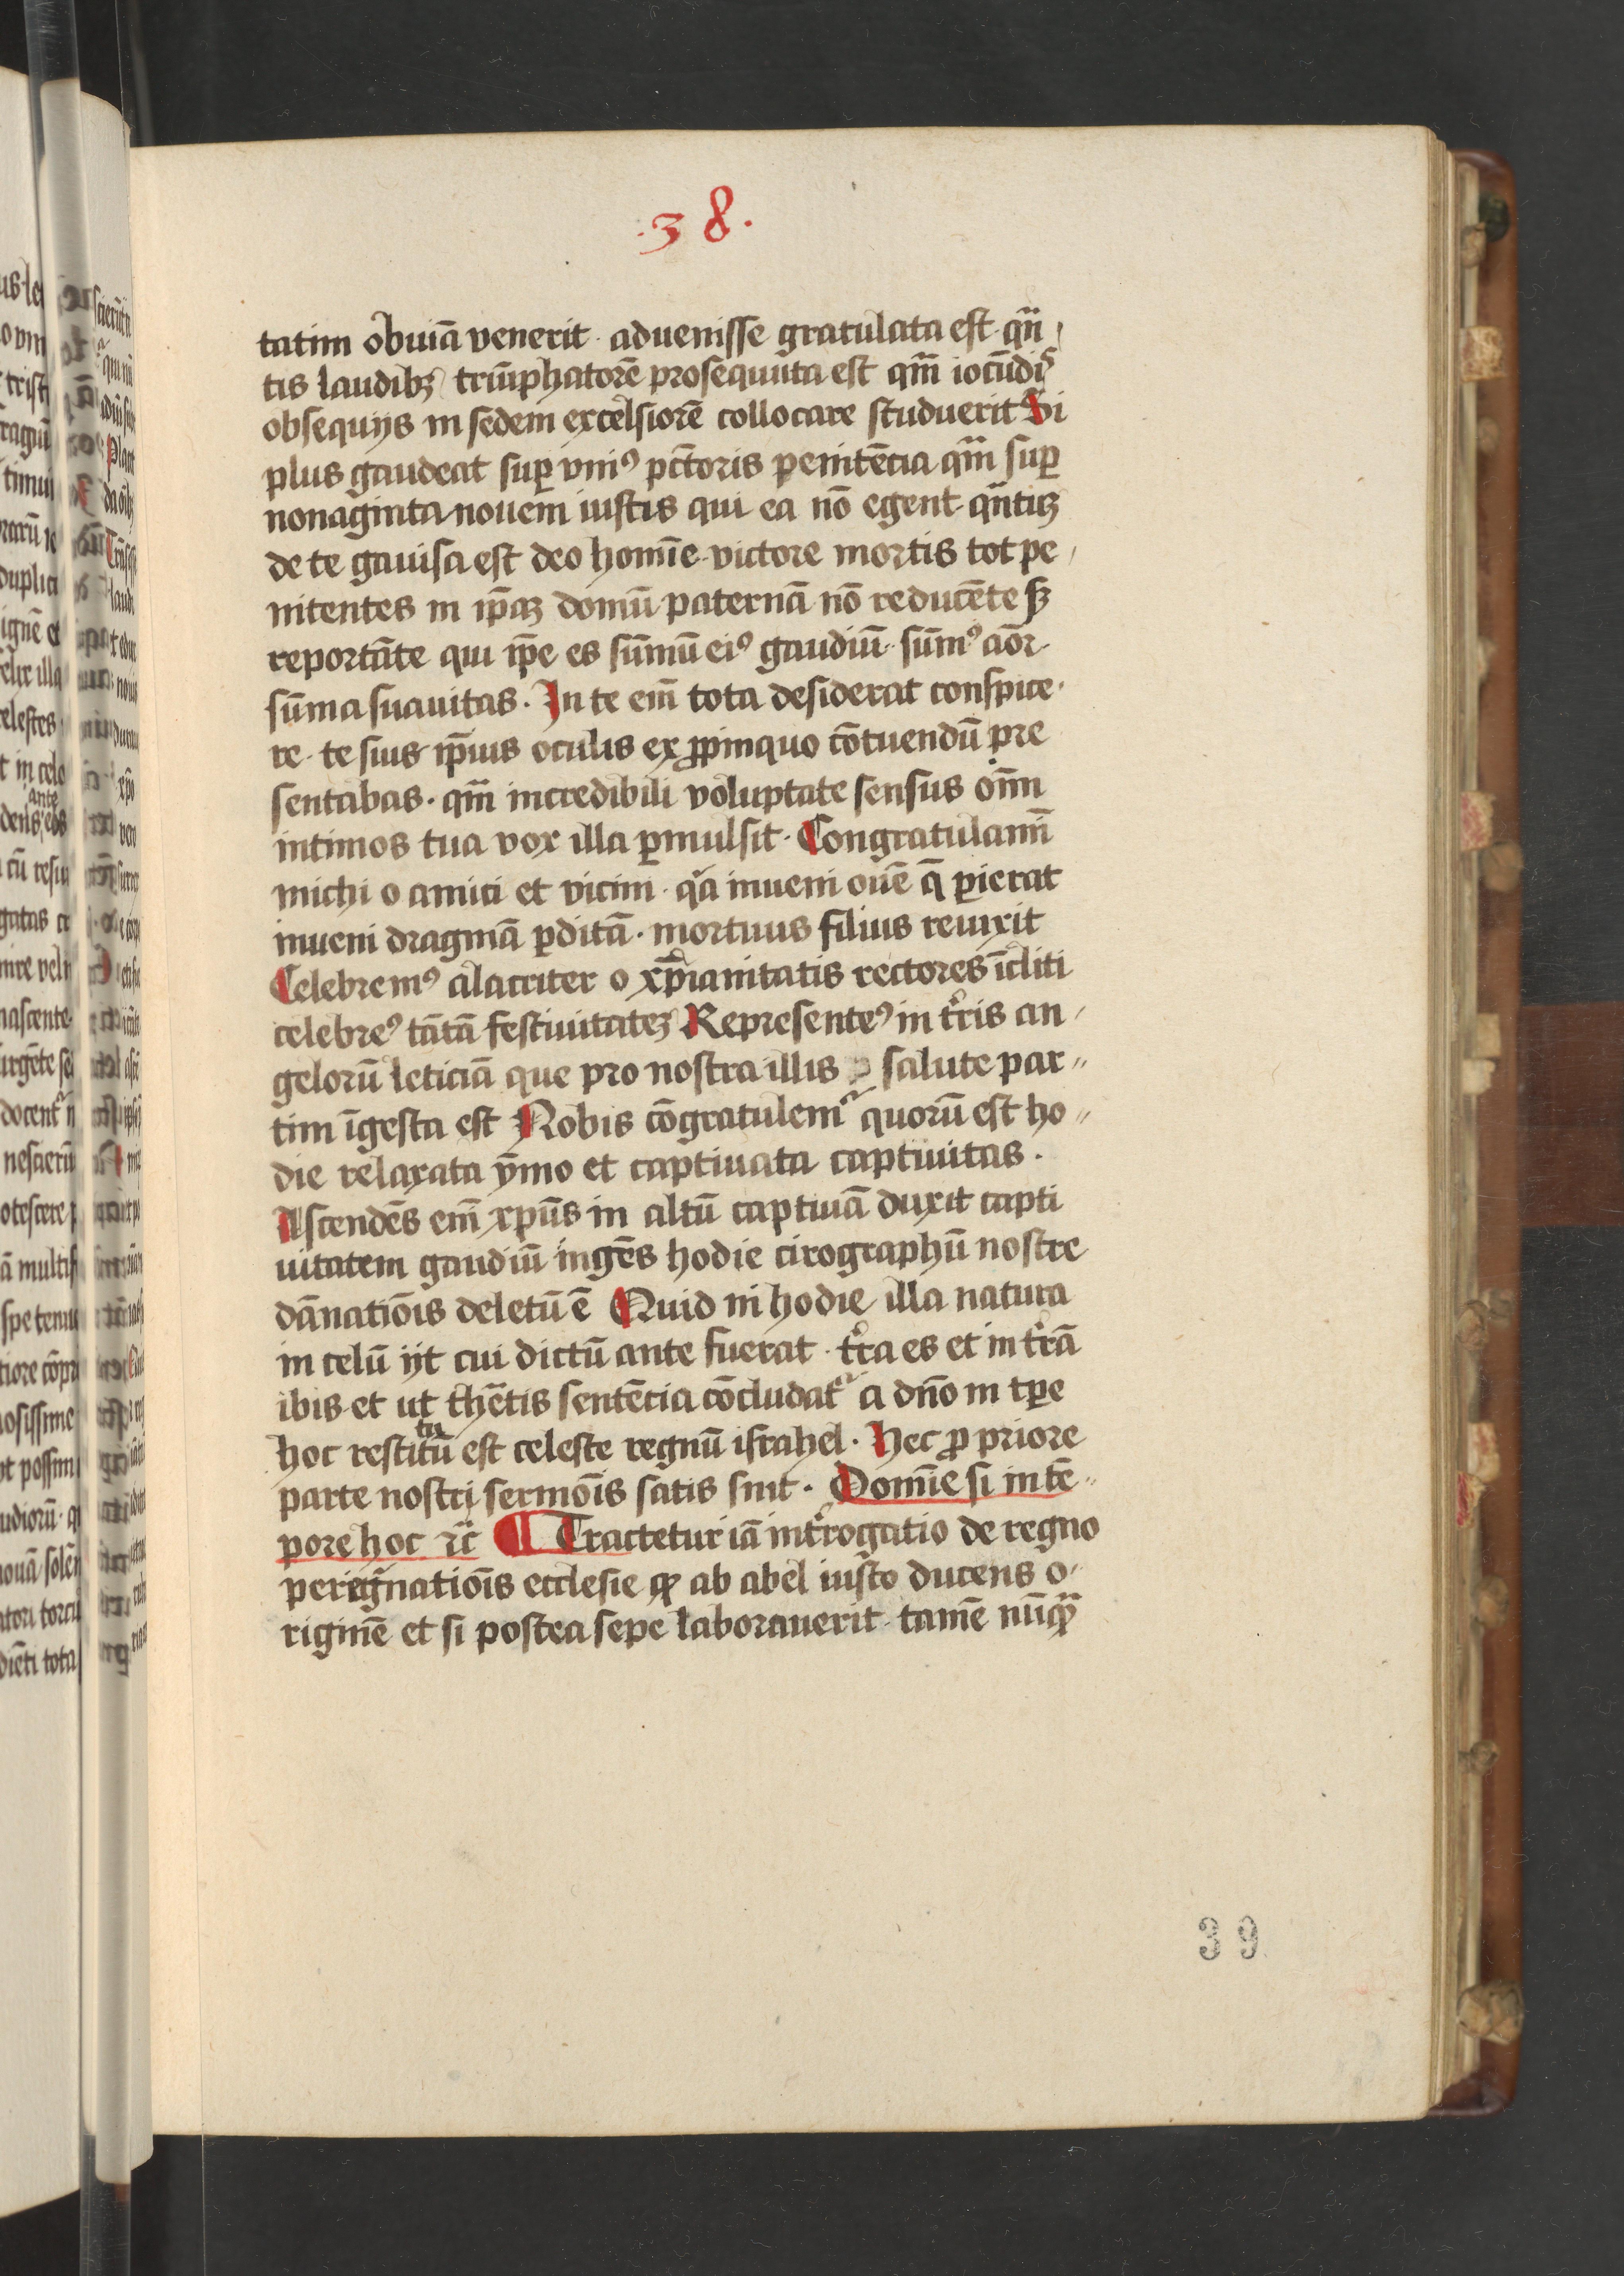 .38.
tatim obuiā venerit · aduenisse gratulata est · qn̄
tis laudibꝫ triūphatorē prosequuta est qm̄ iocūdiꝰ
obsequijs in sedem excelsiorē collocare studuerit Si
plus gaudeat suꝑ vniꝰ pctōris penitēcia qm̄ suꝑ
nonaginta nouem iustis qui ea nō egent · qn̄tūꝫ
de te gauisa est deo homīe · victore mortis tot pe
nitentes in ip̄aꝫ domū paternā nō reducēte sꝫ
reportāte qui ip̄e es sūmū eiꝰ gaudiū · sūmꝰ aōr ·
sūma suauitas . In te em̄ tota desiderat conspice
re · te suis ip̄ius oculis ex ꝓpinquo cōtuendū pre
sentabas · qm̄ incredibili voluptate sensus om̄n
intimos tua vox illa ꝑmulsit · Congratulamī
michi o amici et vicini · qa inueni ouē q̄ ꝑierat
inueni dragmā ꝑditā · mortuus filius reuixit
Celebremꝰ alacriter o xp̄ianitatis rectores īcliti
celebreꝰ tātā festiuitateꝫ Representeꝰ in tr̄is an
gelorū leticiā que pro nostra illis salute par
tim īgesta est Nobis cōgratulemꝰ quorū est ho
die relaxata ȳmo et captiuata captiuitas .
Ascendēs em̄ xpūs in altū captiuā duxit capti
uitatem gaudiū ingēs hodie cirographū nostre
dānatiōis deletū ē Quid ni hodie illa natura
in celū ijt cui dictū ante fuerat · tr̄a es et in tr̄ā
ibis et ut thētis sentēcia cōcludat᷑ a dn̄o in tꝑe
hoc restitutū est celeste regnū israhel · Hec ꝓ priore
parte nostri sermōis satis sint · Domīe si in tē
pore hoc ⁊c̄ ¶ Tractetur iā int̄rogatio de regno
perigr̄nationis ecclesie ꝙ ab abel iusto ducens o
riginē et si postea sepe laborauerit · tamē nūqꝫ
39